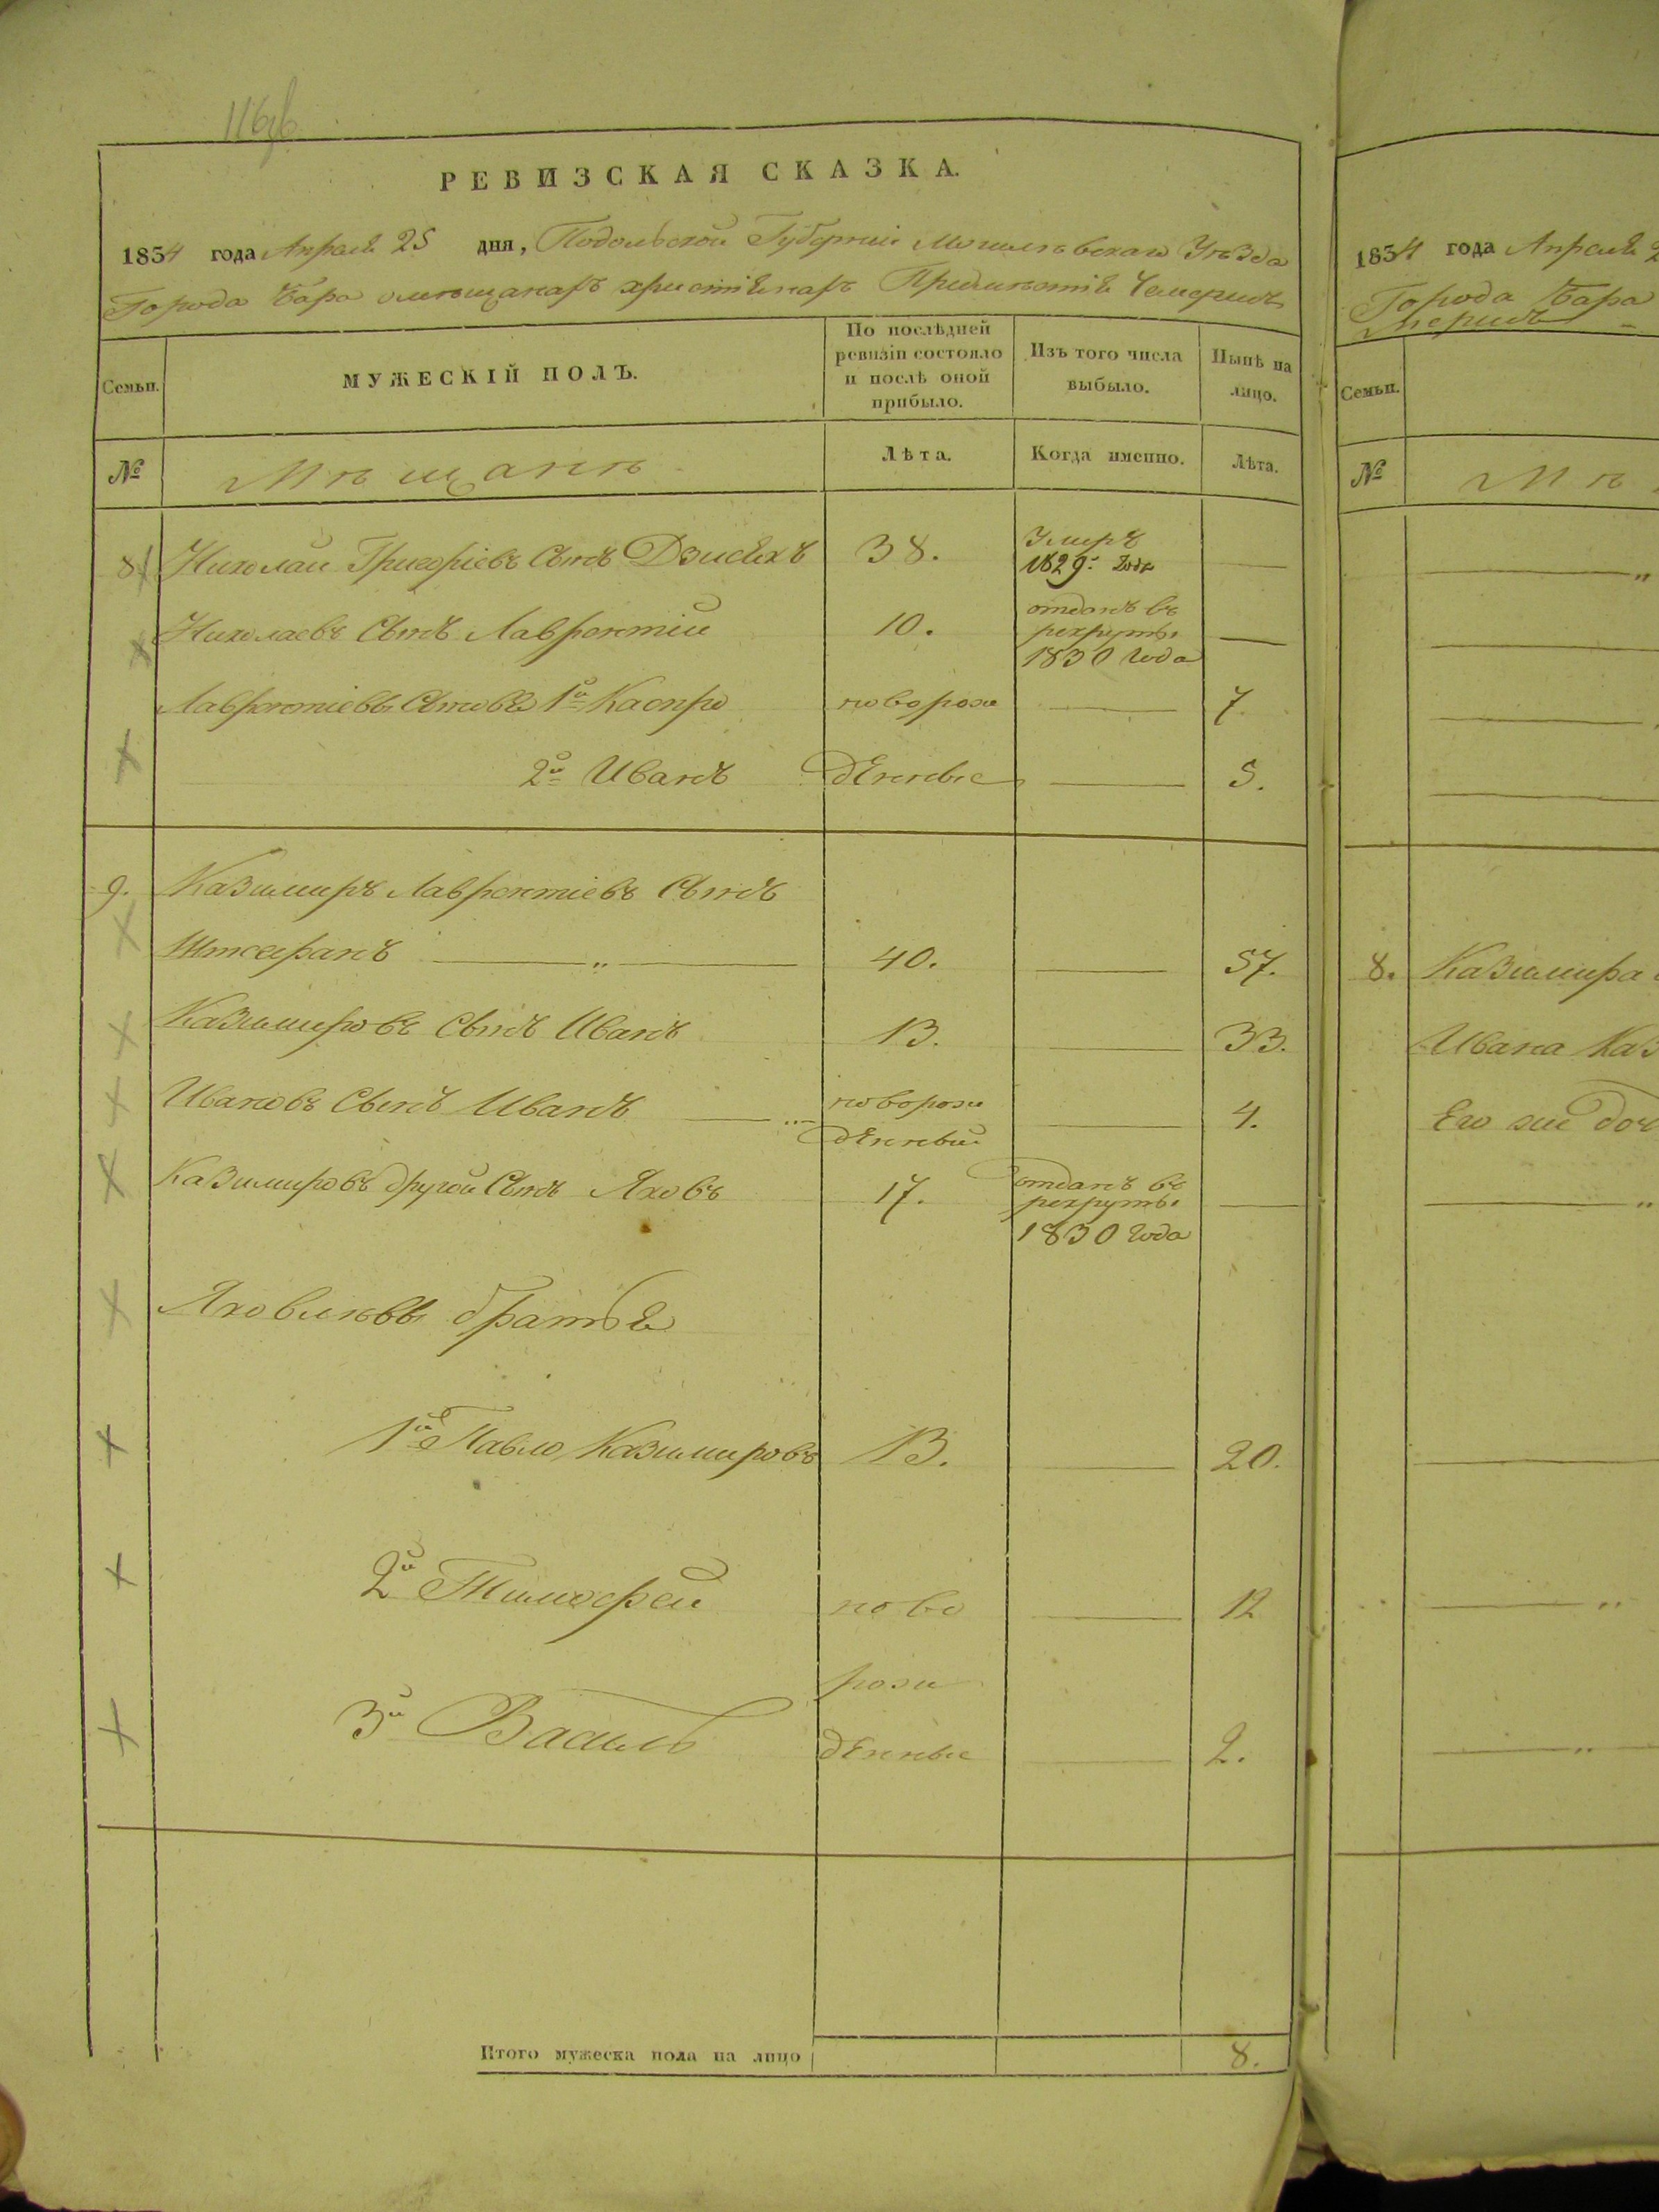 РЕВИЗСКАЯ СКАЗКА.
1834 года Апреля 25 дня, Подольской Губерніи Могилевскаго Уѣзда
Города Бара о мѣщанахъ христіянахъ Предмѣстія Чемерисъ
Семьи.
МУЖЕСКІЙ ПОЛЪ.
По послѣдней ревизіи состояло и послѣ оной прибыло.
Изъ того числа выбыло.
Нынѣ на лицо.
№
Мѣщанѣ
Лѣта.
Когда именно.
Лѣта.
8 Николай Григоріевъ Сынъ 38. Умеръ 1829 года
Николаевъ Сынъ Лаврентій 10. отданъ въ рекруты 1830 года
Лаврентіевы Сыновя 1й Каспро новорож 7
2й Иванъ дѣнные 5.
9. Казимиръ Лаврентіевъ Сынъ
40. 57.
Казимировъ Сынъ Иванъ 13. 33.
Ивановъ Сынъ Иванъ новорожденный 4.
Казимировъ другой Сынъ Яковъ 17. отданъ въ рекруты 1830 года
Яковлевы братья
1й Павло Казимировъ 13. 20.
2й Тимофей ново 12
рож
3й Василь денные 2.
Итого мужеска пола на лицо 8.
1834 года Апреля 2
Города Бара
Семьи.
№ Мѣ
8. Казимира
Ивана Каз
Его же доч